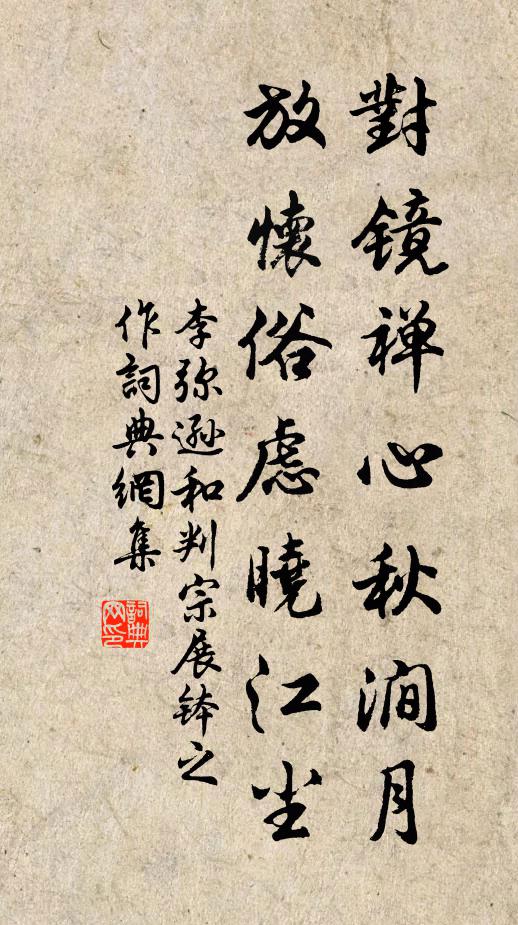 對鏡禅心秋澗月
放懷俗慮曉江尘
李弥遜和判宗展钵之
作詞典網集
詞典网印